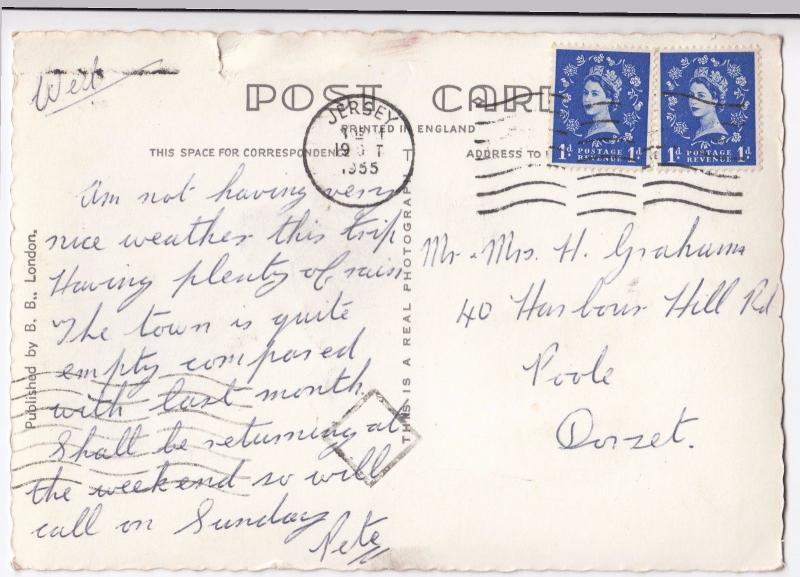 Wed.
POST CARD
PRINTED IN ENGLAND
THIS SPACE FOR CORRESPONDENCE
ADDRESS TO
JERSEY
19 T
1955
1d POSTAGE REVENUE 1d
1d POSTAGE REVENUE 1d
Am not having very
nice weather this trip
Having plenty of rain
The town is quite
empty compared
with last month.
Shall be returning at
the weekend so will
call on Sunday
Pete
Mr & Mrs. H. Graham
40 Harbour Hill Rd
Poole
Dorset.
Published by B. B., London.
THIS IS A REAL PHOTOGRAPH